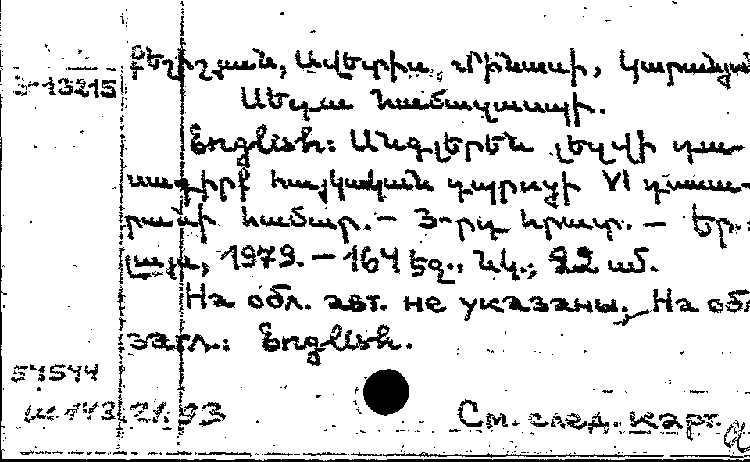 Քեշիշյան, Ավետիս Մինասի, Կարանյան
Սեդա Համազասպի.
English: Անգլերեն լեզվի դա-
սագիրք հայկական դպրոցի VI դասա-
րանի համար. — 3-րդ հրատ. — Եր.:
Լույս, 1979. — 164 էջ., նկ.; 22 սմ.
На обл. авт. не указаны. На обл.
загл.: English.
54544
См. след. карт.